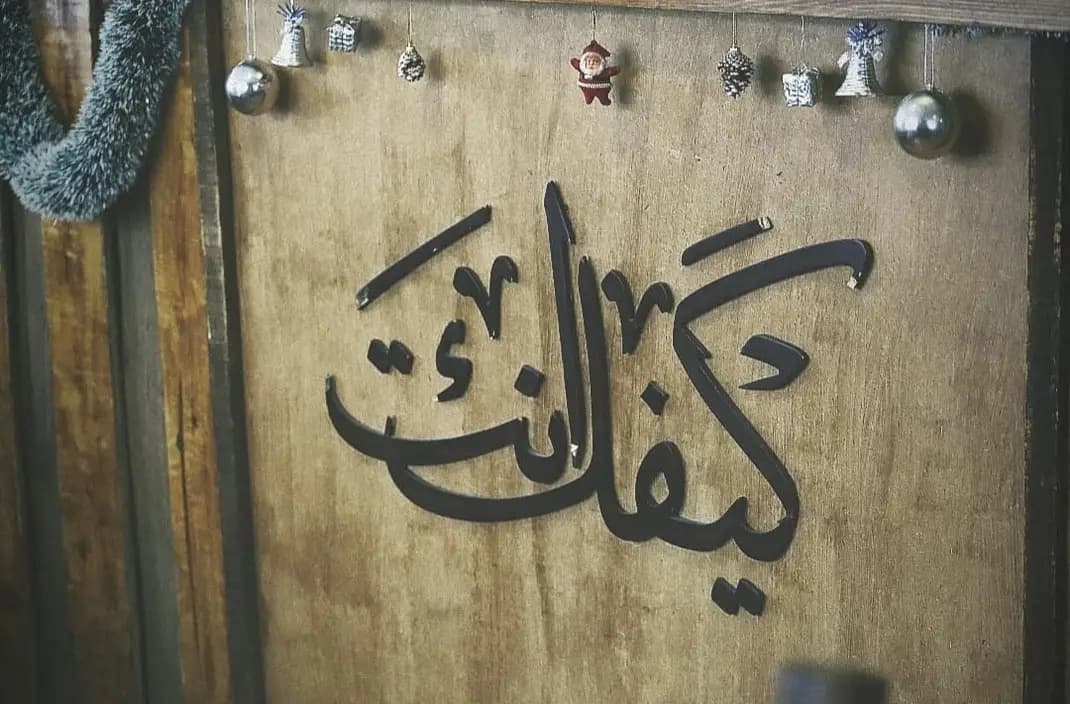 كيفك انت